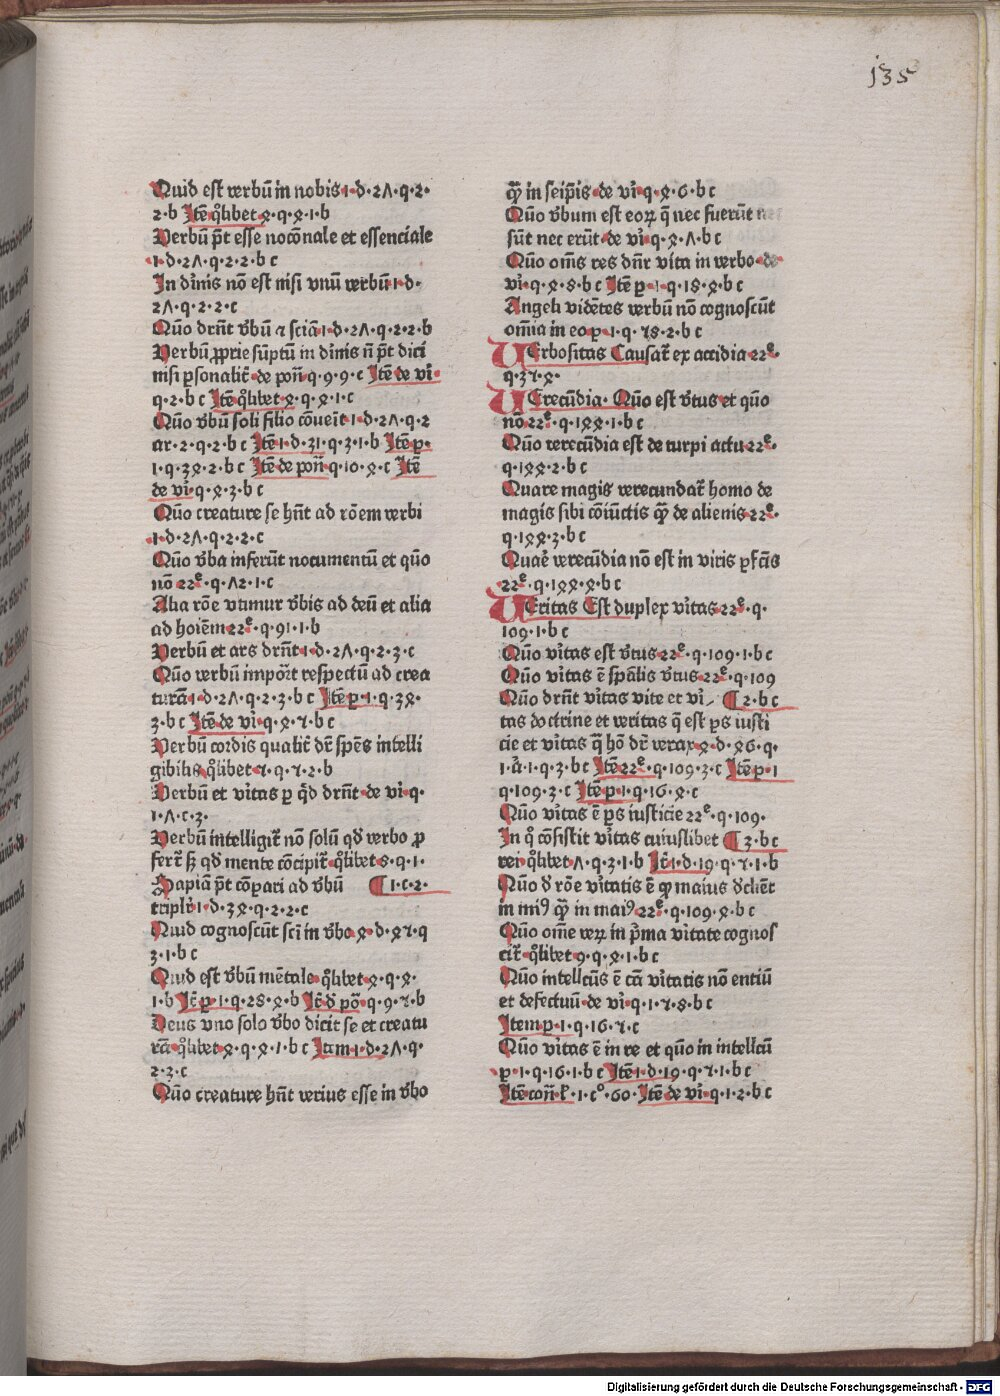 135
Quid est verbū in nobis·1·d·27·q·2·
2·b Itē q̄libet 4·q·4·1·b
Verbū p̄t esse nocōnale et essenciale
·1·d·27·q·2·2·b c
In dīnis nō est nisi vnū verbū·1·d·
27·q·2·2·c
Quō drn̄t v̄bū ⁊ sciā·1·d·27·q·2·2·b
Verbū ꝓprie sūptū in dīnis n̄ p̄t dici
nisi ꝑsonalit̄·de pon̄·q·9·9·c Itē de vi·
q·2·b c Itē q̄libet 4·q·4·1·c
Quō v̄bū soli filio cōueit·1·d·27·q·2
ar·2·q·2·b c Itē·1·d·31·q·3·1·b Itē p·
1·q·34·2·b c Itē de pon̄·q·10·4·c Itē
de vi·q·4·3·b c
Quō creature se hn̄t ad rōem verbi
·1·d·27·q·2·2·c
Quō v̄ba inferūt nocumentū et quō
nō 22ᵉ·q·72·1·c
Alia rōe vtimur v̄bis ad deū et alia
ad hoiēm 22ᵉ·q·91·1·b
Verbū et ars drn̄t·1·d·27·q·2·3·c
Quō verbū import̄ respectū ad crea
turā·1·d·27·q·2·3·b c Itē p·1·q·34·
3·b c Itē de vi·q·4·5·b c
Verbū cordis qualit̄ dr̄ spēs intelli
gibilis q̄libet 5·q·5·2·b
Verbū et vītas p q̄d drn̄t·de vi·q·
1·7·c·3·
Verbū intelligit̄ nō solū qd verbo ꝓ
fert̄ sꝫ qd mente cōcipit̄ q̄libet 8·q·1·
Sapiā p̄t cōpari ad v̄bū ¶1·c·2·
triplr̄·1·d·34·q·2·2·c
Quid cognoscūt sci in v̄bo 4·d·45·q
3·1·b c
Quid est v̄bū mētale q̄libet 4·q·4·
1·b Itē p·1·q·28·4·b Itē d̄ pō·q·9·5·b
Deus vno solo v̄bo dicit se et creatu
rā q̄libet 4·q·4·1·b c Item·1·d·27·q·
2·3·c
Quō creature hn̄t verius esse in v̄bo
q̄ in seip̄is·de vi·q·4·6·b c
Quō v̄bum est eoꝝ q̄ nec fuerūt n
sūt nec erūt·de vi·q·4·7·b c
Quō om̄s res dn̄r vita in verbo·de
vi·q·4·8·b c Itē p·1·q·18·4·b c
Angeli vidētes verbū nō cognoscūt
om̄ia in eo p·1·q·58·2·b c
VErbositas Causat̄ ex accidia 22ᵉ·
q·35·4·
VErecūdia. Quō est v̄tus et quō
nō 22ᵉ·q·144·1·b c
Quō verecūdia est de turpi actu 22ᵉ·
q·144·2·b c
Quare magis verecundat̄ homo de
magis sibi cōiūctis q̄ de alienis 22ᵉ·
q·144·3·b c
Quaē verecūdia nō est in viris ꝑfcīs
22ᵉ·q·144·4·b c
VEritas Est duplex vītas 22ᵉ·q·
109·1·b c
Quō vītas est v̄tus 22ᵉ·q·109·1·b c
Quō vītas ē sp̄alis v̄tus 22ᵉ·q·109
Quō drn̄t vītas vite et vi ¶2·b c
tas doctrine et veritas q̄ est ps iusti
cie et vītas q̄ hō dr̄ verax 4·d·46·q·
1·ā·1·q·3·b c Itē 22ᵉ·q·109·3·c Itē p·1
q·109·3·c Itē p·1·q·16·4·c
Quō vītas ē ps iusticie 22ᵉ·q·109·
In q̄ cōsistit vītas cuiuslibet ¶3·b c
rei q̄libet 7·q·3·1·b Itē·1·d·19·q·5·1·b
Quō d̄ rōe vītatis ē ꝙ maius d̄clīet
in miꝰ q̄ in maiꝰ 22ᵉ·q·109·4·b c
Quō om̄e veꝝ in p̄ma vītate cognos
cit̄ q̄libet 9·q·4·1·b c
Quō intellcūs ē cā vītatis nō entiū
et defectuū·de vi·q·1·5·8·b c
Item p·1·q·16·5·c
Quō vītas ē in re et quō in intellcū
·p·1·q·16·1·b c Itē·1·d·19·q·5·1·b c
Itē con̄ ḡ·1·c°·60·Itē de vi·q·1·2·b c
Digitalisierung gefördert durch die Deutsche Forschungsgemeinschaft - DFG